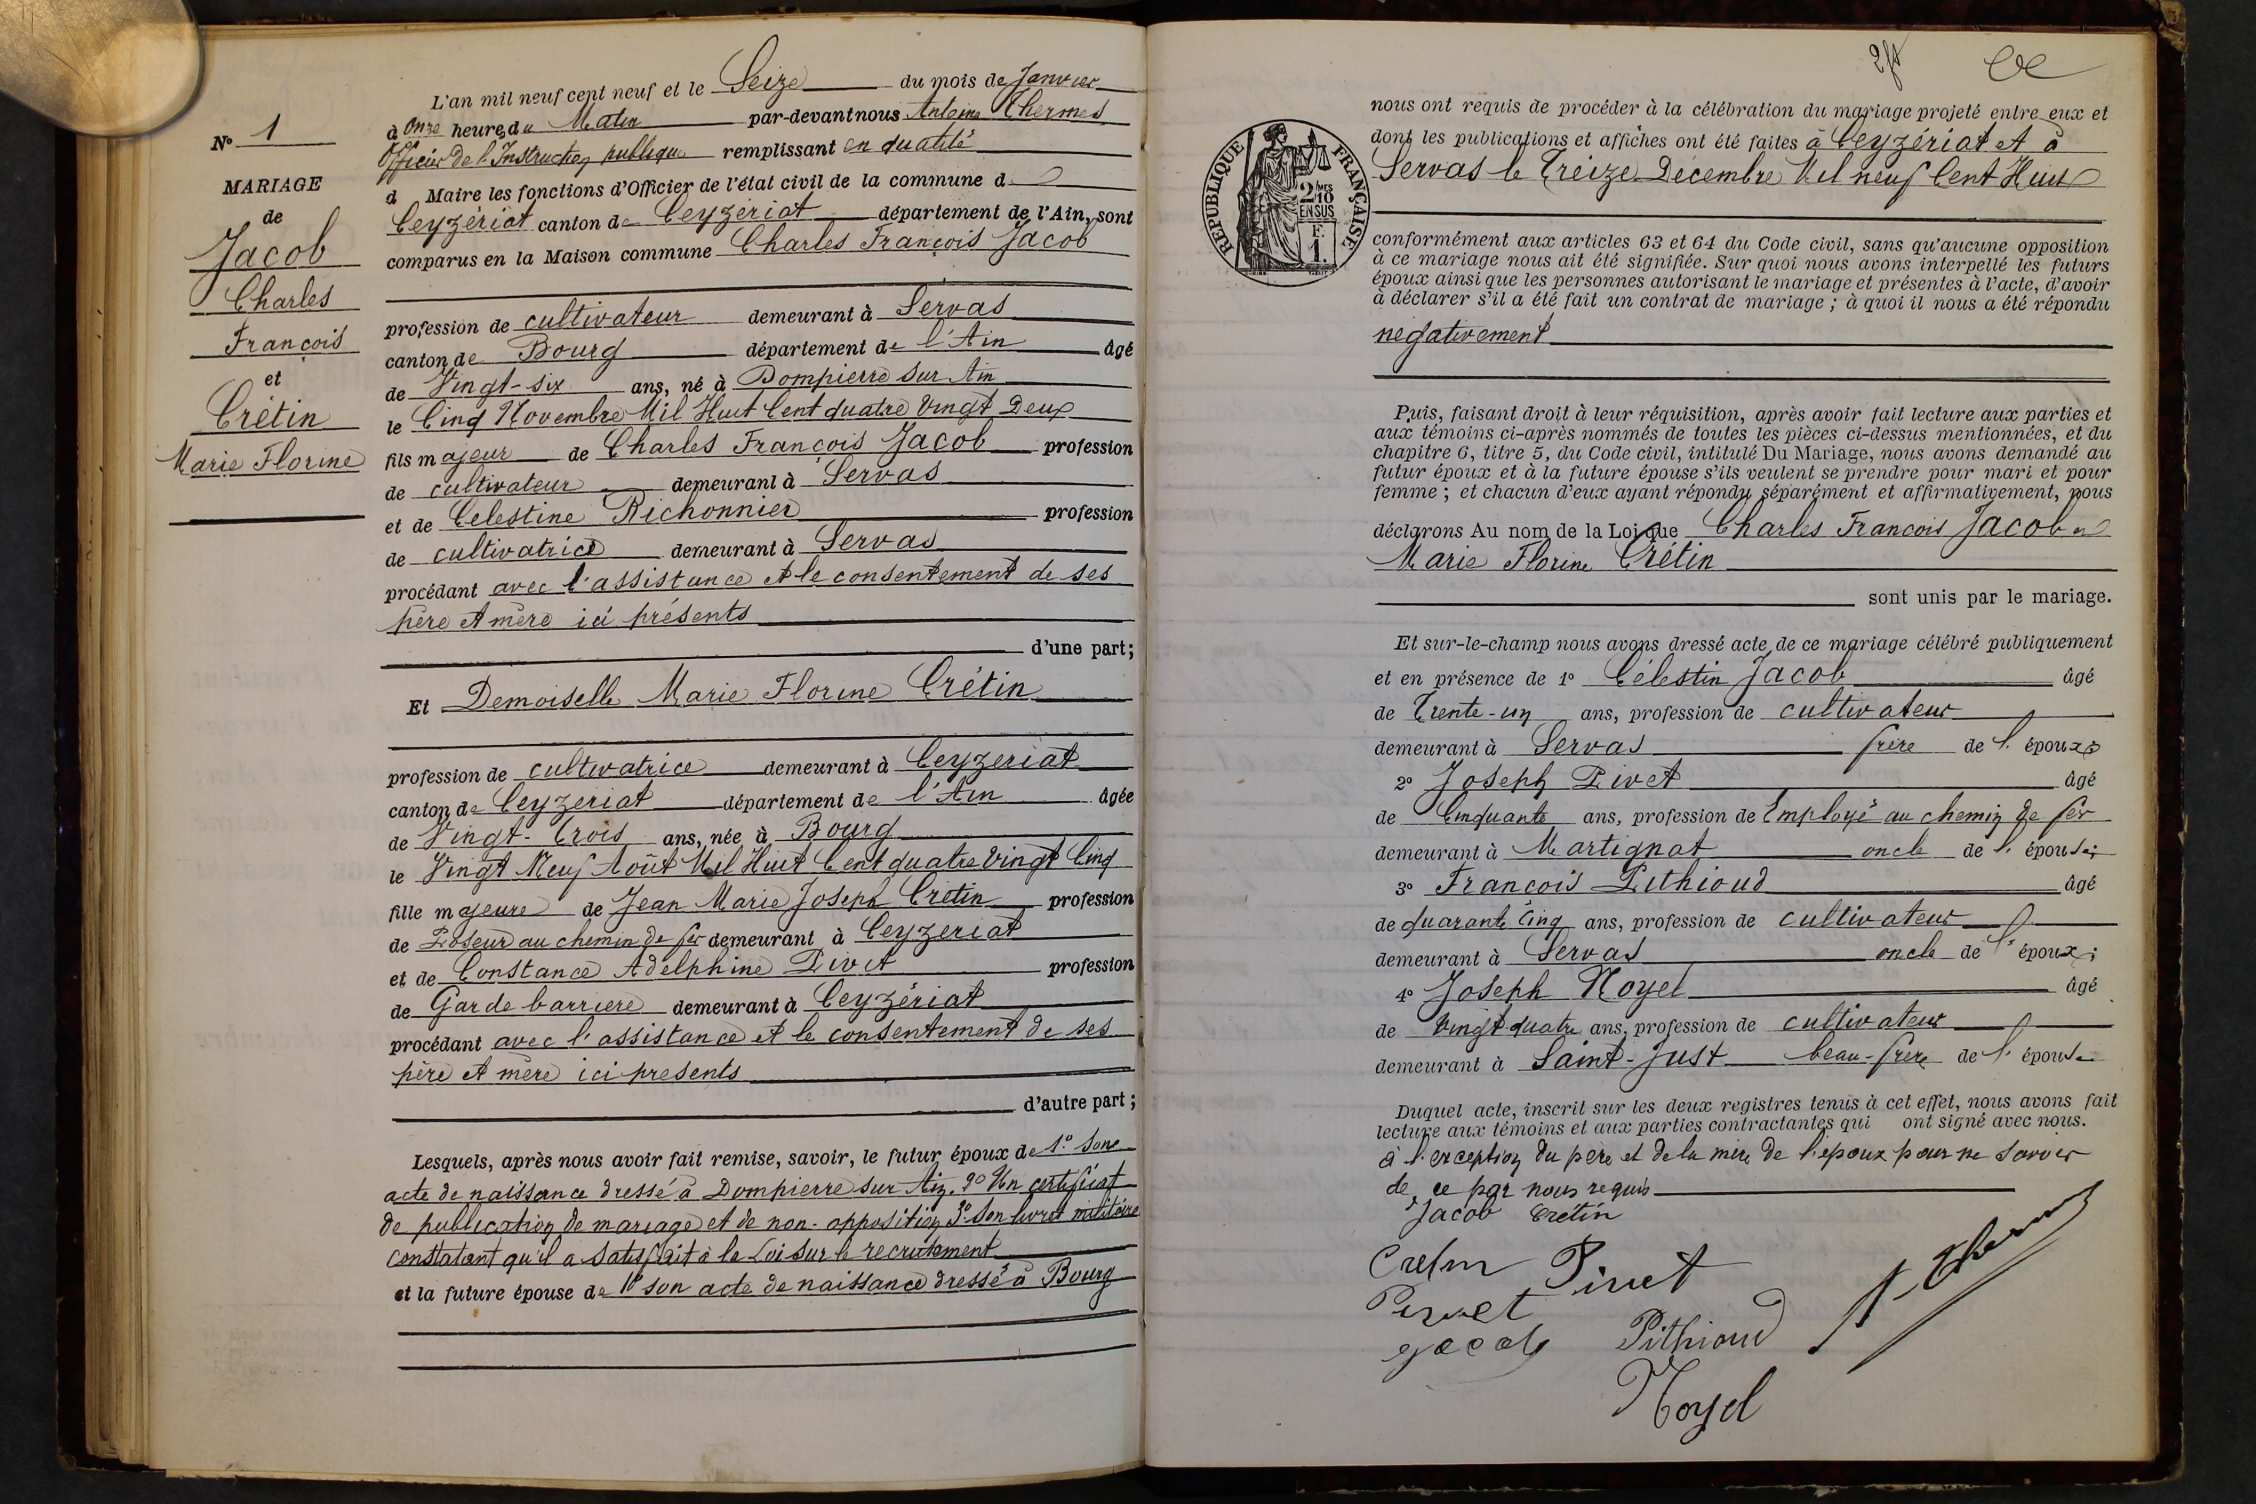 L'an mil neuf cent neuf et le Seize du mois de Janvier
à Onze heures du Matin par-devant nous Antoine Chermes
Officier de l'Instruction publique remplissant en qualité
d Maire les fonctions d'Officier de l'état civil de la commune d
Ceyzériat canton de Ceyzériat département de l'Ain, sont
comparus en la Maison commune Charles François Jacob
profession de cultivateur demeurant à Servas
canton de Bourg département de l'Ain âgé
de Vingt-six ans, né à Dompierre sur Ain
le Cinq Novembre Mil Huit Cent quatre Vingt Deux
fils majeur de Charles François Jacob profession
de cultivateur demeurant à Servas
et de Celestine Richonnier profession
de cultivatrice demeurant à Servas
procédant avec l'assistance et le consentement de ses
père et mère ici présents
d'une part;
Et Demoiselle Marie Florine Crétin
profession de cultivatrice demeurant à Ceyzeriat
canton de Ceyzeriat département de l'Ain âgée
de Vingt-Trois ans, née à Bourg
le Vingt Neuf Août Mil Huit Cent quatre Vingt Cinq
fille majeure de Jean Marie Joseph Cretin profession
de Poseur au chemin de fer demeurant à Ceyzeriat
et de Constance Adelphine Pivet profession
de Garde barriere demeurant à Ceyzériat
procédant avec l'assistance et le consentement de ses
père et mère ici présents
d'autre part;
Lesquels, après nous avoir fait remise, savoir, le futur époux de 1º Son
acte de naissance dressé à Dompierre sur Ain. 2º Un certificat
de publication de mariage et de non-opposition 3º Son livret militaire
constatant qu'il a satisfait à la Loi sur le recrutement
et la future épouse de 1º son acte de naissance dressé à Bourg
Nº 1
MARIAGE
de
Jacob
Charles
François
et
Crétin
Marie Florine
RÉPUBLIQUE FRANÇAISE
2/10
EN SUS
F.
1.
nous ont requis de procéder à la célébration du mariage projeté entre eux et
dont les publications et affiches ont été faites à Ceyzériat et à
Servas le Treize Décembre Mil neuf Cent Huit
conformément aux articles 63 et 64 du Code civil, sans qu'aucune opposition
à ce mariage nous ait été signifiée. Sur quoi nous avons interpellé les futurs
époux ainsi que les personnes autorisant le mariage et présentes à l'acte, d'avoir
à déclarer s'il a été fait un contrat de mariage ; à quoi il nous a été répondu
négativement
Puis, faisant droit à leur réquisition, après avoir fait lecture aux parties et
aux témoins ci-après nommés de toutes les pièces ci-dessus mentionnées, et du
chapitre 6, titre 5, du Code civil, intitulé Du Mariage, nous avons demandé au
futur époux et à la future épouse s'ils veulent se prendre pour mari et pour
femme ; et chacun d'eux ayant répondu séparément et affirmativement, nous
déclarons Au nom de la Loi que Charles François Jacob et
Marie Florine Crétin
sont unis par le mariage.
Et sur-le-champ nous avons dressé acte de ce mariage célébré publiquement
et en présence de 1º Célestin Jacob âgé
de Trente-un ans, profession de cultivateur
demeurant à Servas frère de l' époux;
2º Joseph Pivet âgé
de Cinquante ans, profession de Employé au chemin de fer
demeurant à Martignat oncle de l' épouse;
3º François Pithioud âgé
de quarante Cinq ans, profession de cultivateur
demeurant à Servas oncle de l' époux;
4º Joseph Noyel âgé
de Vingt quatre ans, profession de cultivateur
demeurant à Saint-Just beau-frère de l' épouse
Duquel acte, inscrit sur les deux registres tenus à cet effet, nous avons fait
lecture aux témoins et aux parties contractantes qui ont signé avec nous.
à l'exception du père et de la mère de l'époux pour ne savoir
de ce par nous requis
Jacob Cretin
Cretin Pivet
Pivet
Jacob Pithioud A. Chermes
Noyel